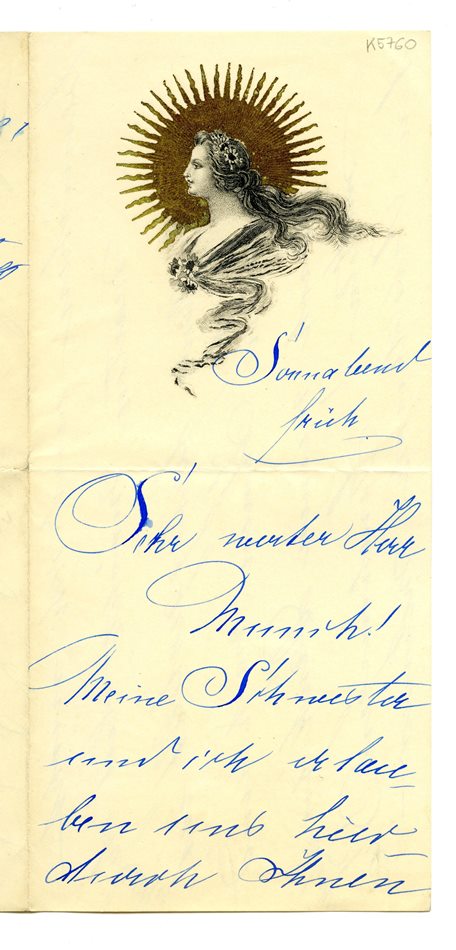 K5760
Sonnabend
früh.
Sehr werter Herr
Munch!
Meine Schwester
und ich erlau-
ben uns hier
durch Ihnen